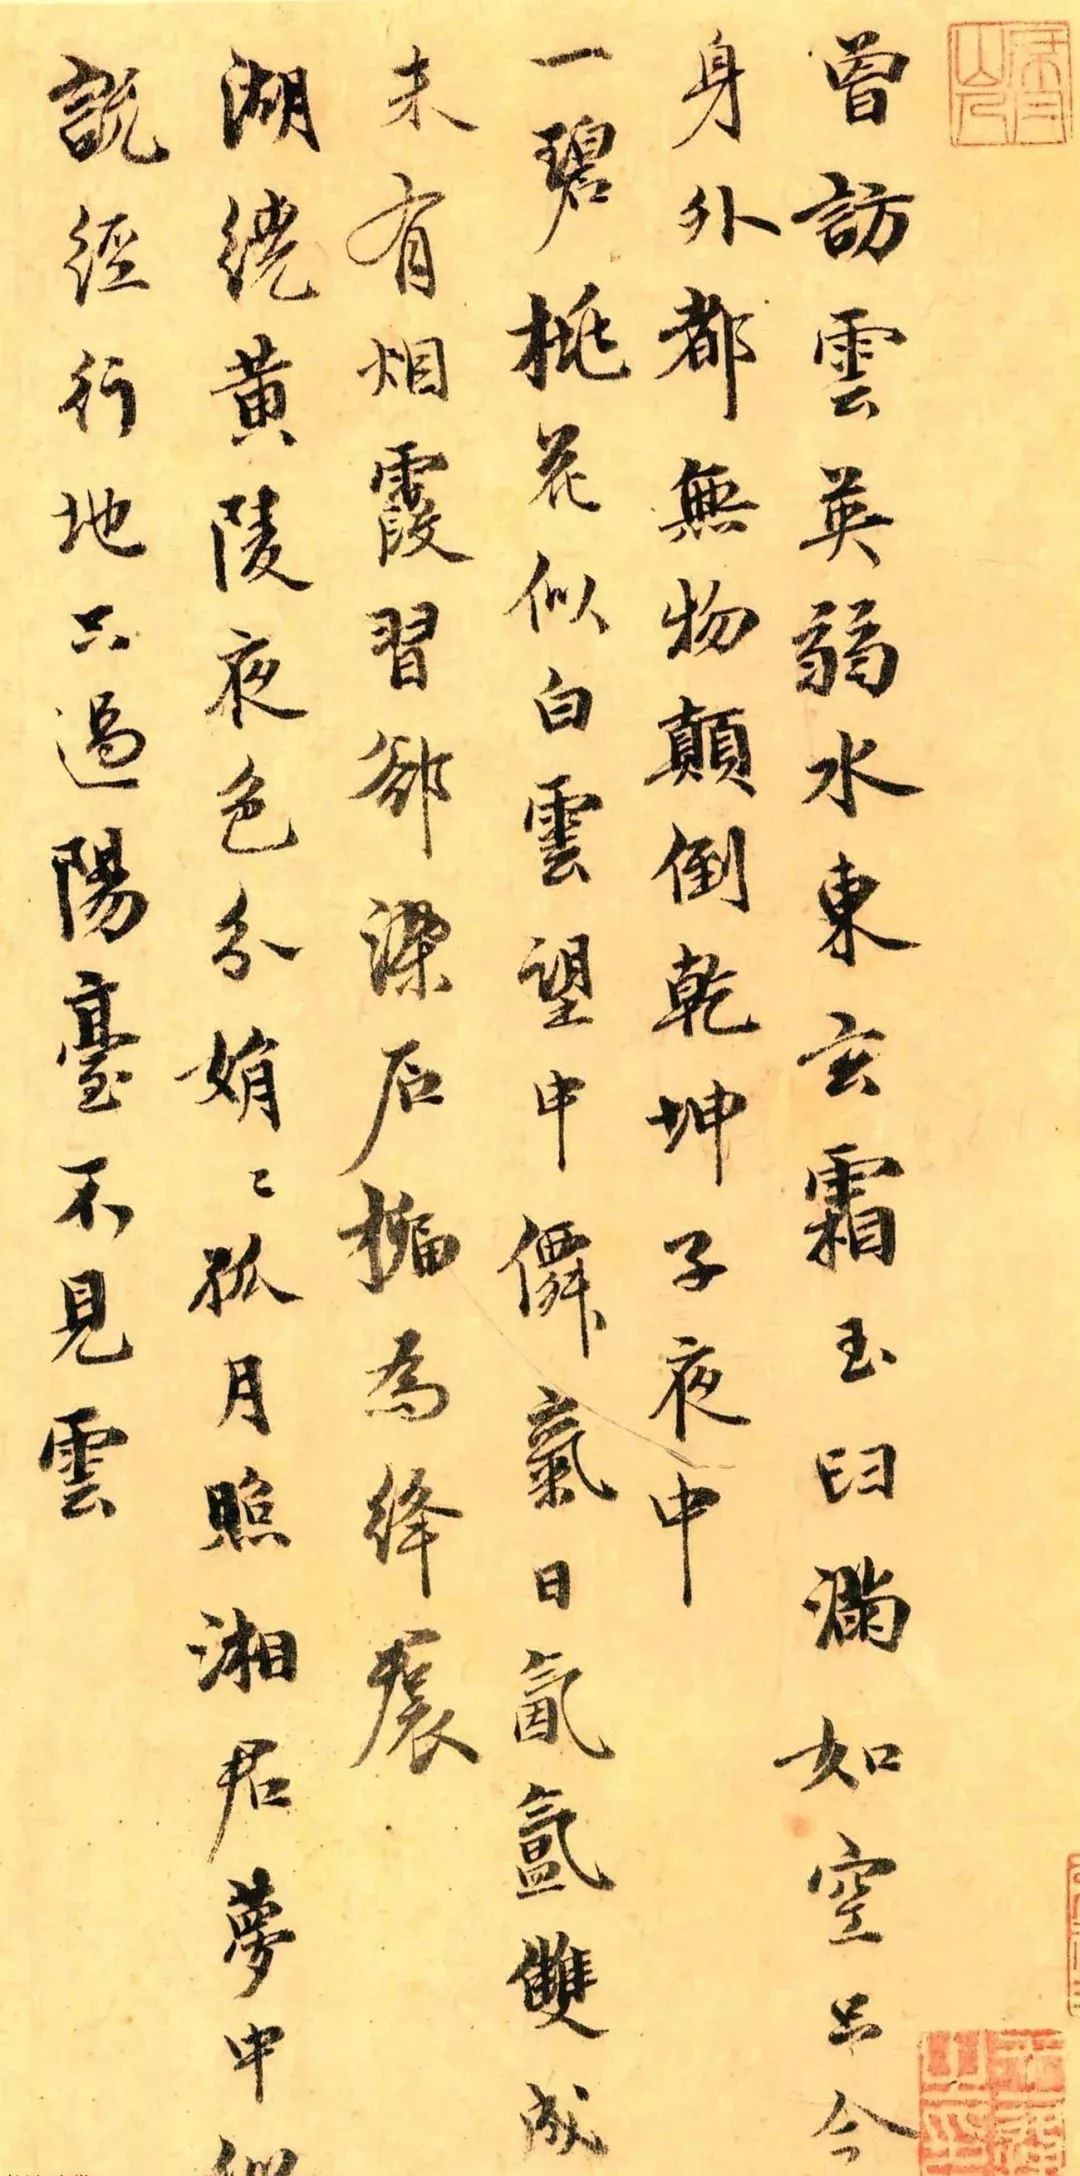 曾訪雲英弱水東玄霜玉臼滿如空只今
身外都無物顛倒乾坤子夜中
一碧桃花似白雲望中僊氣日氤氳雙成
未有烟霞習卻染后楄為絳裠
湖繞黄陵夜色分娟〻孤月照湘君夢中
說經行地只過陽臺不見雲